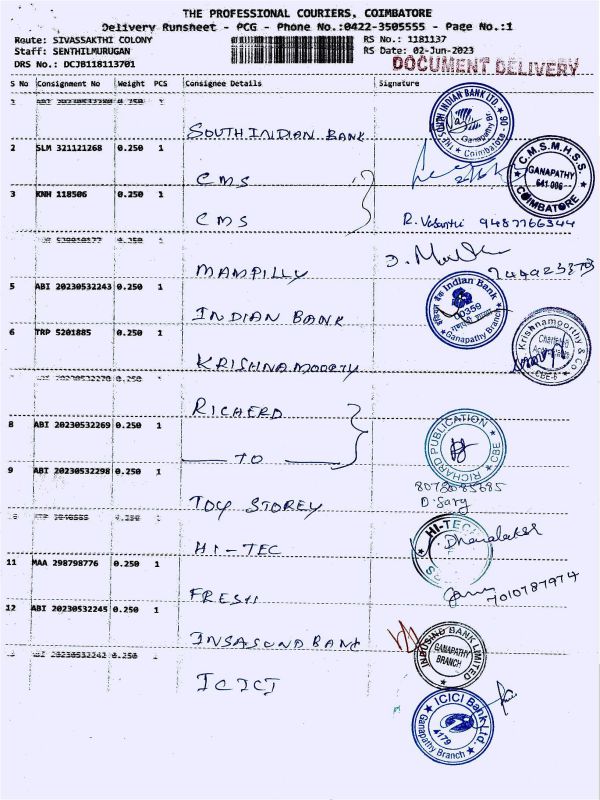 THE PROFESSIONAL COURIERS, COIMBATORE
Delivery Runsheet - PCG - Phone No.:0422-3505555 - Page No.:1
Route: SIVASSAKTHI COLONY RS No.: 1181137
Staff: SENTHILMURUGAN RS Date: 02-Jun-2023
DRS No.: DCJB118113701 DOCUMENT DELIVERY
S No Consignment No Weight PCS Consignee Details Signature
SOUTH INDIAN BANK
THE SOUTH INDIAN BANK LTD. Ganapathy Coimbatore - 06
2 SLM 321121268 0.250 1
CMS
C.M.S.M.H.S.S. GANAPATHY 641 006 COIMBATORE
3 KNH 118506 0.250 1
CMS
R. Vasanthi 9487766344
MAMPILLY
5 ABI 20230532243 0.250 1
INDIAN BANK
Indian Bank 00359 Ganapathy Branch
6 TRP 5201885 0.250 1
KRISHNAMOORTY
Krishnamoorthy & Co Chartered Accountants CBE-6
RICHERD
8 ABI 20230532269 0.250 1
TO
RICHARD PUBLICATION CBE
9 ABI 20230532298 0.250 1
8078085685
TOY STOREY
HI-TEC
HI-TEC
11 MAA 298798776 0.250 1
FRESH
7010787974
12 ABI 20230532245 0.250 1
INSASUND BANK
INDUSIND BANK LIMITED GANAPATHY BRANCH
ICICI
ICICI Bank Ltd. 4179 Ganapathy Branch